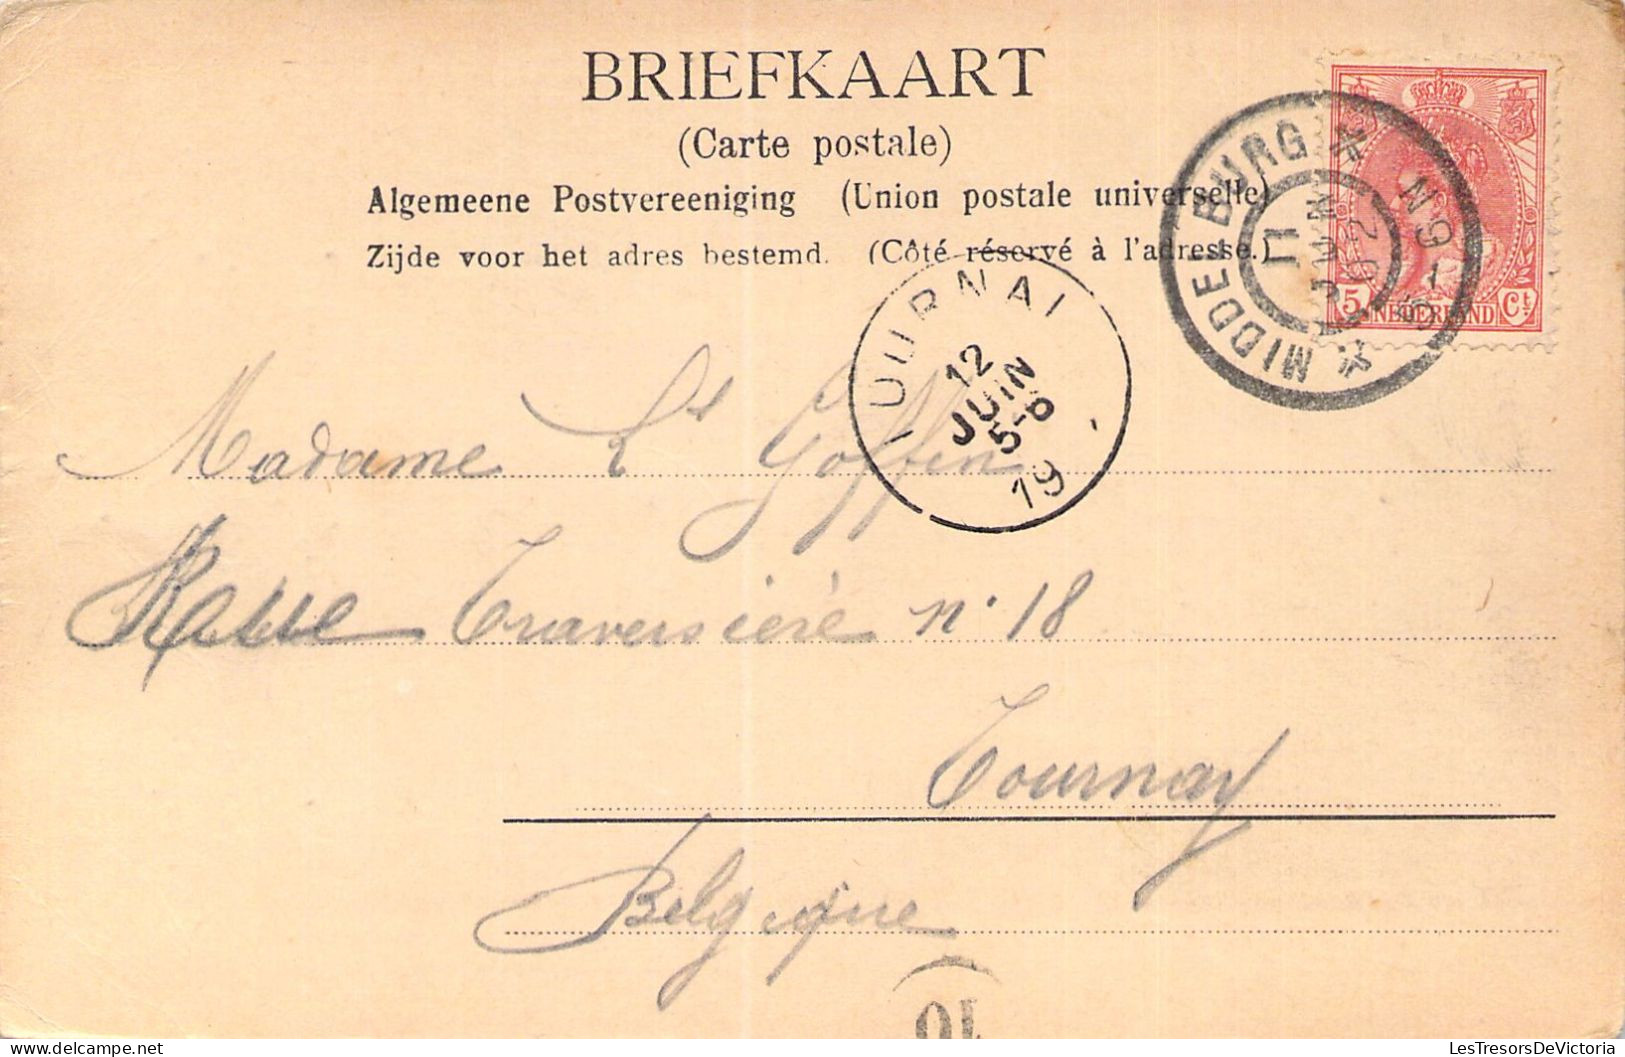 BRIEFKAART
(Carte postale)
Algemeene Postvereeniging (Union postale universelle)
Zijde voor het adres bestemd. (Côté réservé à l'adresse.)
MIDDELBURG
11 JUN 02
5-6N
5 Ct
NEDERLAND
TOURNAI
12
JUIN
5-6
19
Madame Goffin
Traversière n° 18
Tournay
Belgique
10
LesTresorsDeVictoria